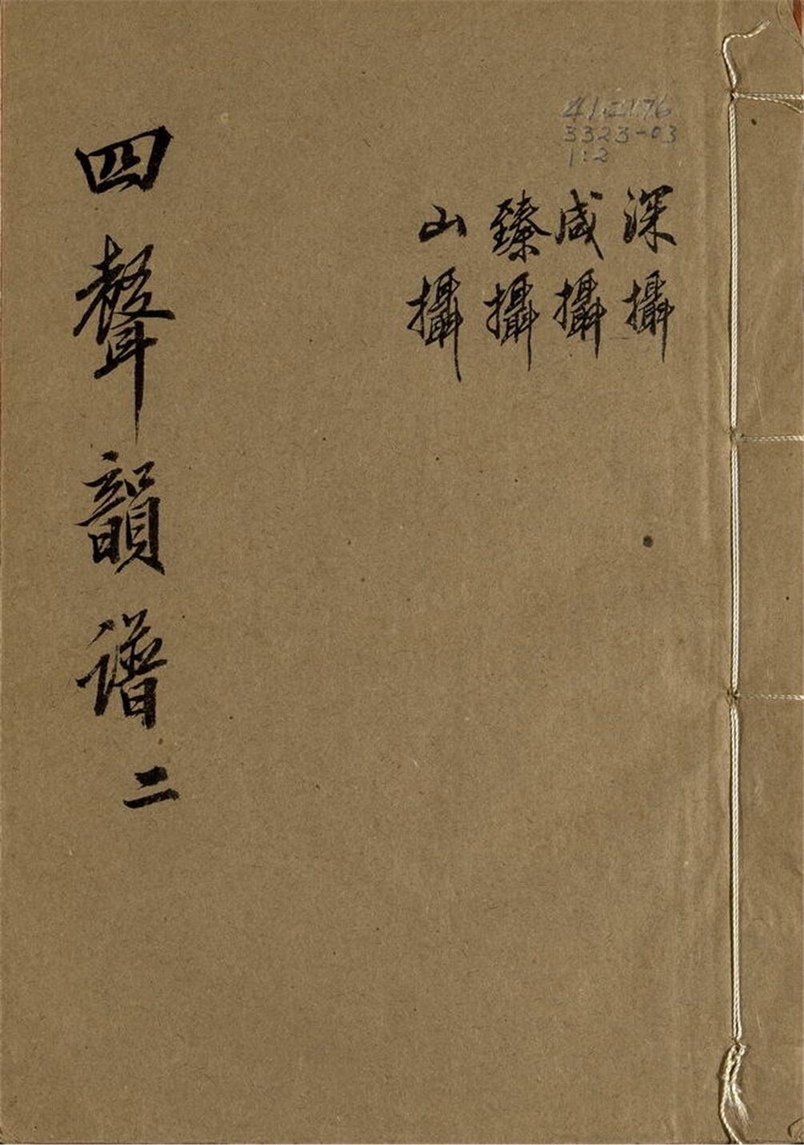 3323-03
1:2
深攝
咸攝
臻攝
山攝
四聲韻譜二